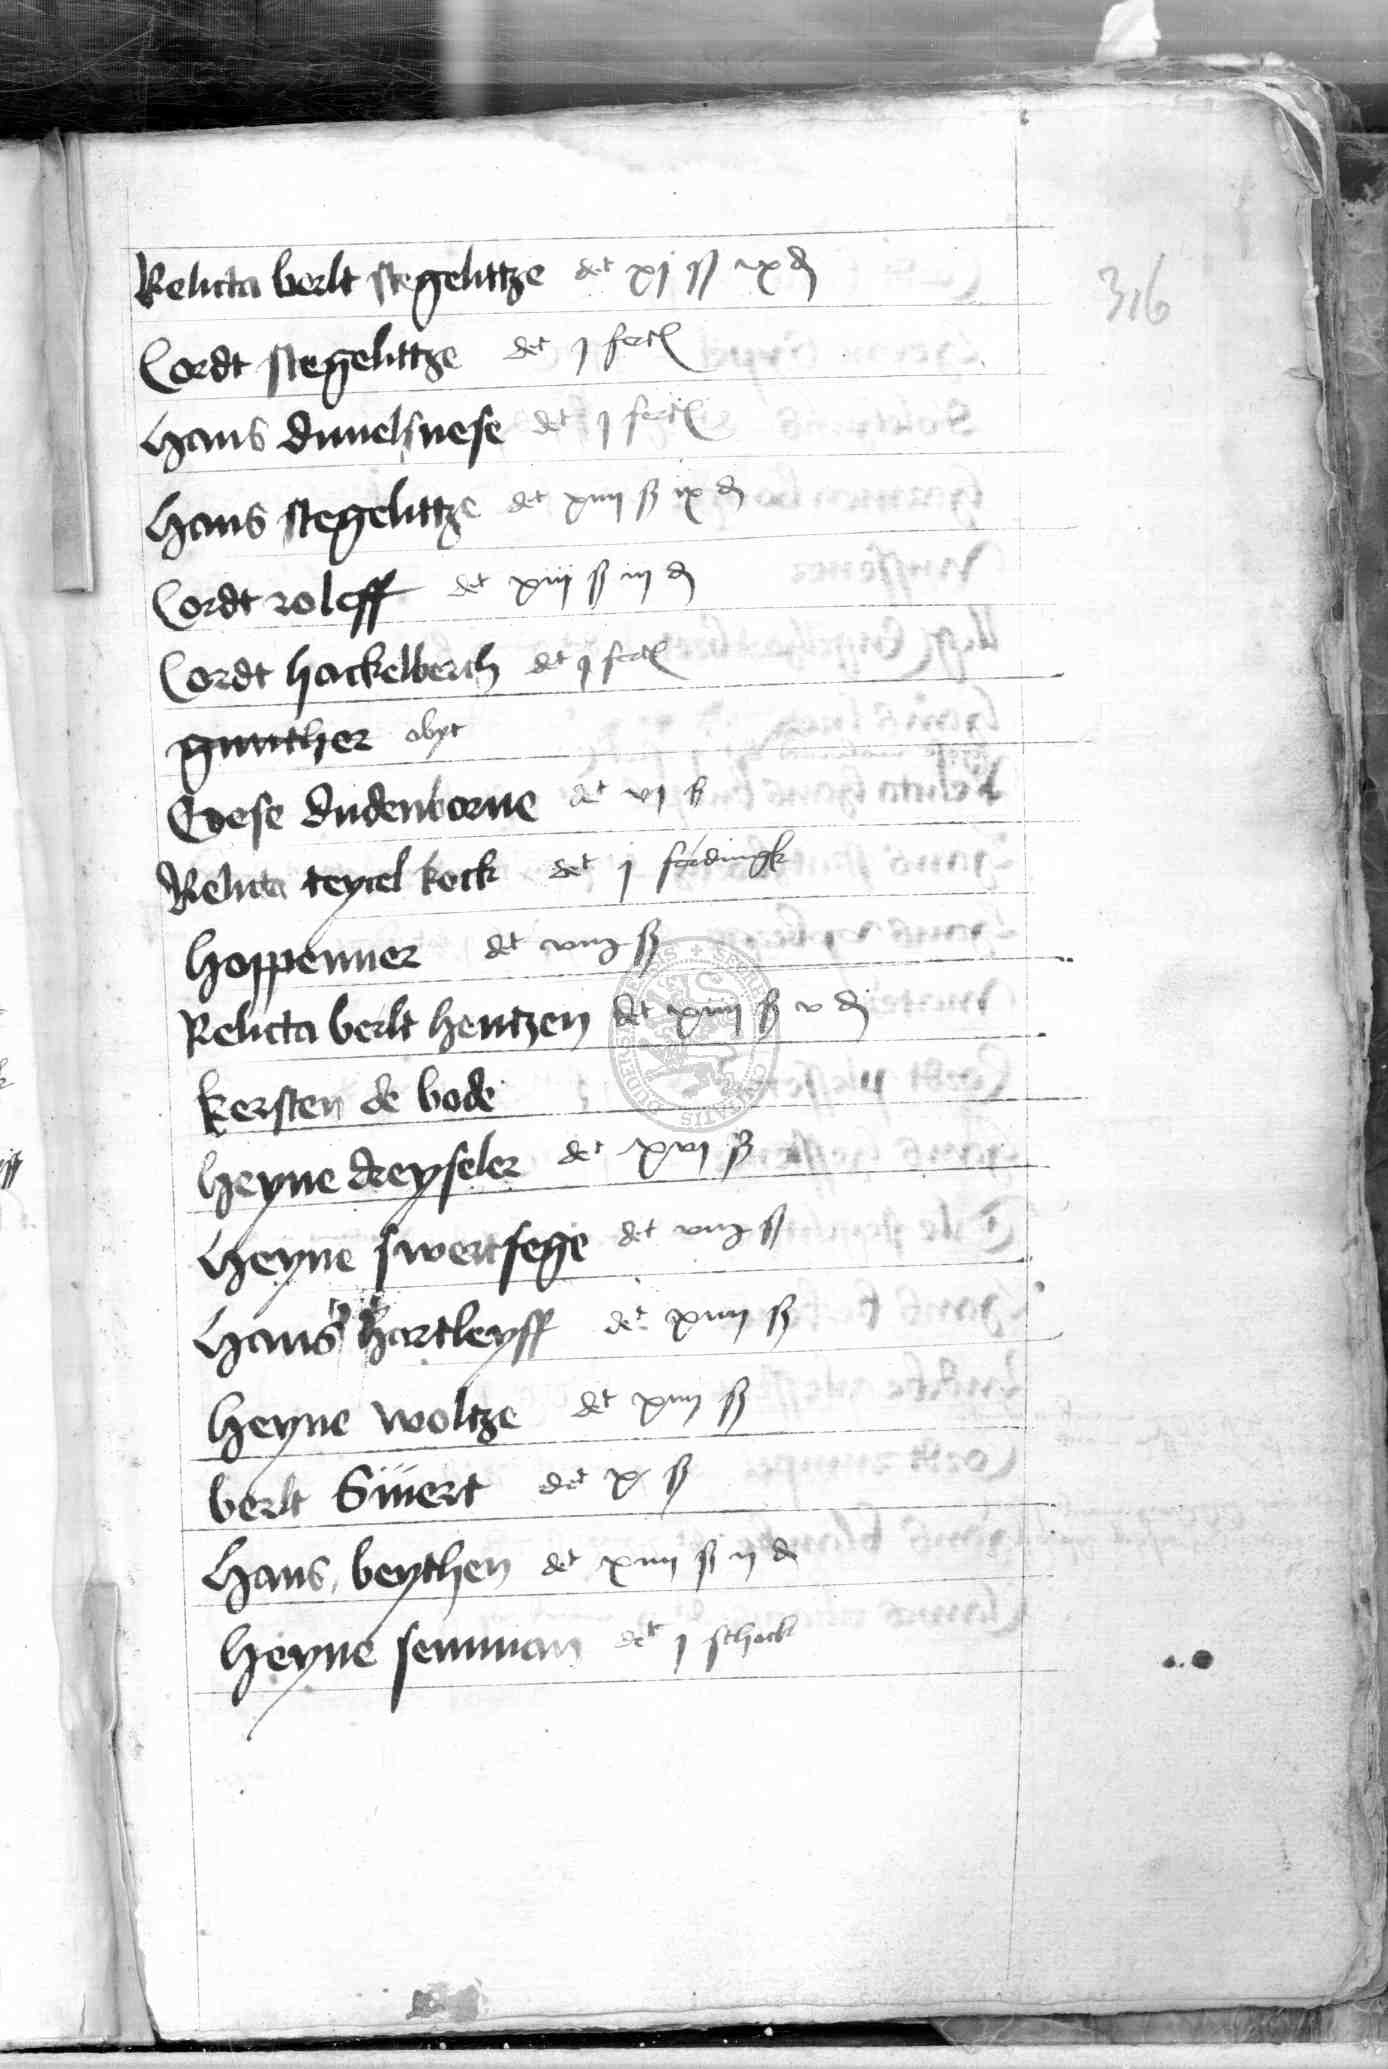 Relicta berlt stegelittze det xj ß ix d
316
Cordt stegelittze det j fertl
Hans duuelsnese det j fertl
Hans stegelittze det xiiij ß ix d
Cordt roleff det xiij ß iij d
Cordt hackelberch det j fertl
gunther obyt
Cord dudenborne det vj ß
Relicta teyzel kock det j ferdingk
Hoppenner det viij ß
Relicta berlt hentzen det xiiij ß v d
kersten de bode
heyne dreyseler det xvj ß
Heyne swertfege det viij ß
Hans hartleyff det xiiij ß
Heyne woltze det xiiij ß
berlt Siuert det x ß
Hans beythen det xiiij ß ij d
Heyne senman det j schock